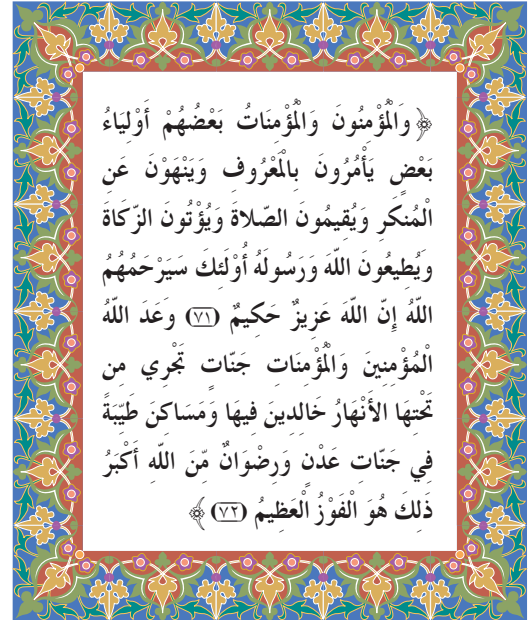 ﴿ وَالْمُؤْمِنُونَ وَالْمُؤْمِنَاتُ بَعْضُهُمْ أَوْلِيَاءُ
بَعْضٍ يَأْمُرُونَ بِالْمَعْرُوفِ وَيَنْهَوْنَ عَنِ
الْمُنكَرِ وَيُقِيمُونَ الصَّلاةَ وَيُؤْتُونَ الزَّكَاةَ
وَيُطِيعُونَ اللَّهَ وَرَسُولَهُ أُوْلَئِكَ سَيَرْحَمُهُمُ
اللَّهُ إِنَّ اللَّهَ عَزِيزٌ حَكِيمٌ (٧١) وَعَدَ اللَّهُ
الْمُؤْمِنِينَ وَالْمُؤْمِنَاتِ جَنَّاتٍ تَجْرِي مِن
تَحْتِهَا الأَنْهَارُ خَالِدِينَ فِيهَا وَمَسَاكِنَ طَيِّبَةً
فِي جَنَّاتِ عَدْنٍ وَرِضْوَانٌ مِّنَ اللَّهِ أَكْبَرُ
ذَلِكَ هُوَ الْفَوْزُ الْعَظِيمُ (٧٢) ﴾